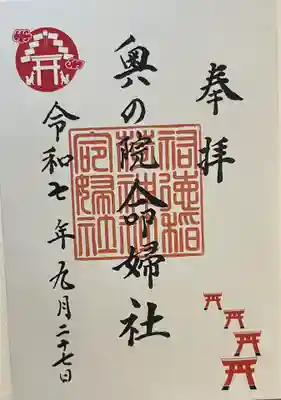 奉拝
奥の院命婦社
祐徳稲
荷神社
命婦社
令和七年九月二十七日